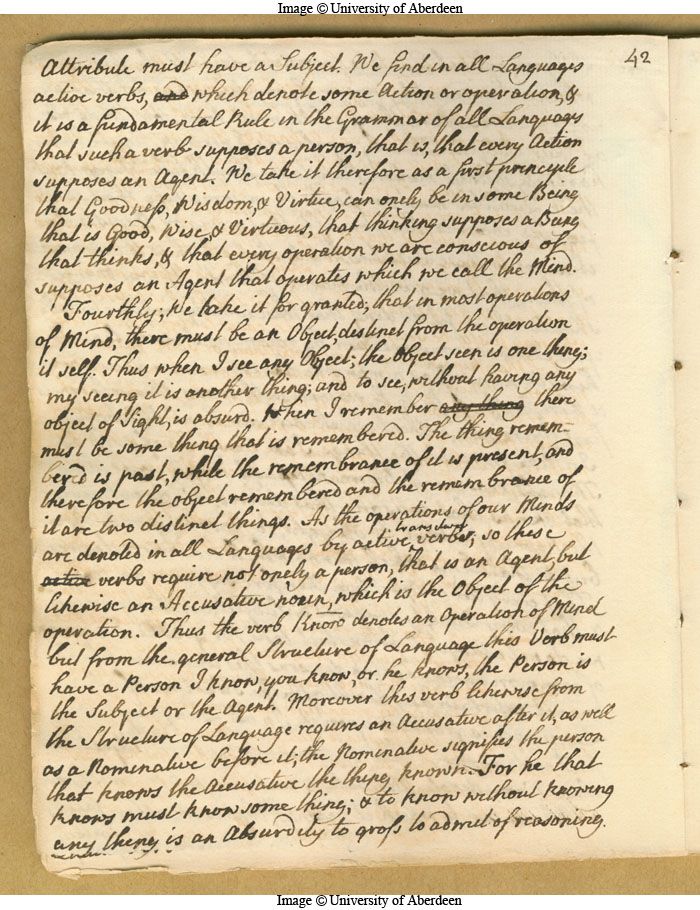 Image © University of Aberdeen
42
Attribute must have a Subject. We find in all Languages
active verbs, and which denote some Action or operation, &
it is a fundamental Rule in the Grammar of all Languages
that such a verb supposes a person, that is, that every Action
supposes an Agent. We take it therefore as a first principle
that Goodness, Wisdom, & Virtue, can onely be in some Being
that is Good, Wise, & Virtuous, that thinking supposes a Being
that thinks, & that every operation we are conscious of
supposes an Agent that operates which we call the Mind.
Fourthly, We take it for granted, that in most operations
of Mind, there must be an Object distinct from the operation
it self. Thus when I see any Object, the object seen is one thing;
my seeing it is another thing; and to see, without having any
object of Sight, is absurd. When I remember any thing there
must be some thing that is remembered. The thing remem-
bered is past, while the remembrance of it is present, and
therefore the object remembered and the remembrance of
it are two distinct things. As the operations of our Minds
are denoted in all Languages by active transitive verbs, so these
active verbs require not onely a person, that is an Agent, but
likewise an Accusative noun, which is the Object of the
operation. Thus the verb Know denotes an Operation of Mind
but from the general Structure of Language this Verb must
have a Person I know, you know, or he knows, the Person is
the Subject or the Agent. Moreover this verb likewise from
the Structure of Language requires an Accusative after it, as well
as a Nominative before it; the Nominative signifies the person
that knows the Accusative the thing known. For he that
knows must know some thing; & to know without knowing
any thing is an Absurdity to gross to admit of reasoning.
Image © University of Aberdeen